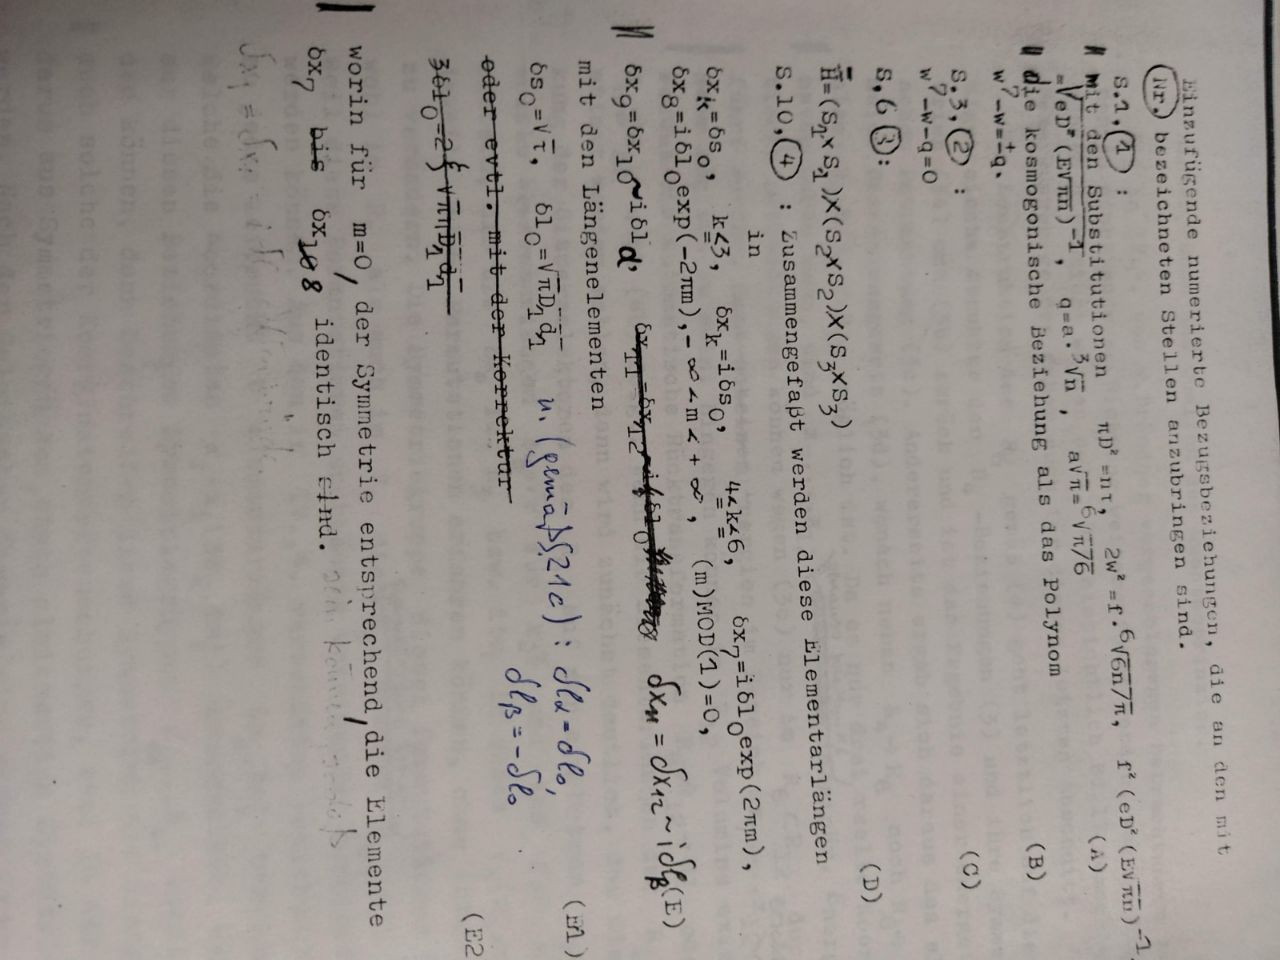 Einzufügende numerierte Bezugsbeziehungen, die an den mit
(Nr.) bezeichneten Stellen anzubringen sind.
S.1, ① :
mit den Substitutionen πD² =nτ, 2w²=f·⁶√6n⁷π, f²(eD²(E√πn)⁻¹
=√eD²(E√πn)⁻¹, q=a·³√n, a√π=⁶√π/6 (A)
die kosmogonische Beziehung als das Polynom
w⁷-w=±q. (B)
S.3, ② :
w⁷-w-q=0 (C)
S.6 ③ :
H̄=(S₁×S₁)×(S₂×S₂)×(S₃×S₃) (D)
S.10, ④ : Zusammengefaßt werden diese Elementarlängen
in
δxₖ=δs₀, k≤3, δxₖ=iδs₀, 4≤k≤6, δx₇=iδl₀exp(2πm),
δx₈=iδl₀exp(-2πm),-∞<m<+∞, (m)MOD(1)=0,
δx₉=δx₁₀~iδl α, δx₁₁=δx₁₂~i δx₁₁ = δx₁₂ ~ iδlβ (E)
mit den Längenelementen
δs₀=√τ, δl₀=√πD₁d₁ u. (gemäß S.21c): δlα = δl₀, (E1)
δlβ = -δl₀
oder evtl. mit der Korrektur
3δl₀=2 √πD₁d₁ (E2
worin für m=0, der Symmetrie entsprechend, die Elemente
δx₇ bis δx₈ identisch sind.